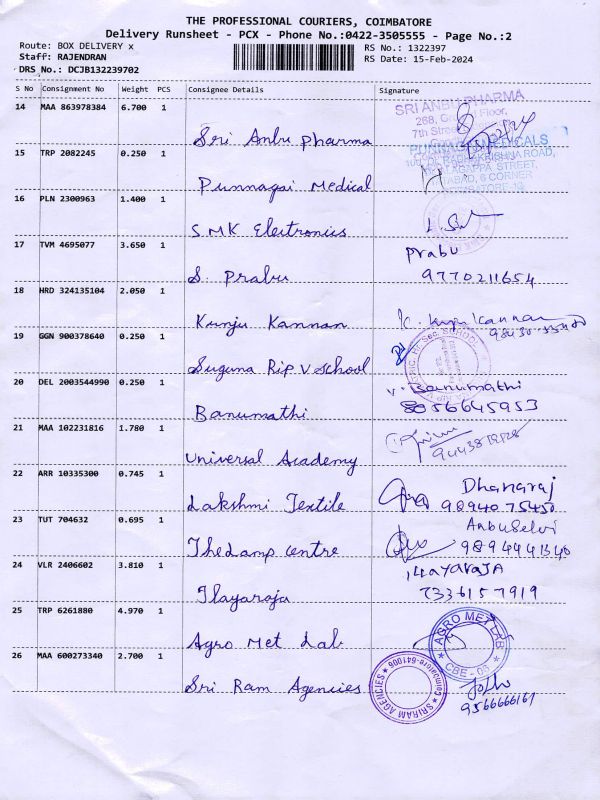 THE PROFESSIONAL COURIERS, COIMBATORE
Delivery Runsheet - PCX - Phone No.:0422-3505555 - Page No.:2
Route: BOX DELIVERY x
RS No.: 1322397
Staff: RAJENDRAN
RS Date: 15-Feb-2024
DRS No.: DCJB132239702
S No Consignment No Weight PCS Consignee Details Signature
14 MAA 863978384 6.700 1
SRI ANBU PHARMA
Sri Anbu Pharma
7th Street
15 TRP 2082245 0.250 1
PUNNAGAI MEDICALS
RADHAKRISHNA ROAD,
Punnagai Medical
16 PLN 2300963 1.400 1
SMK Electronics
17 TVM 4695077 3.650 1
Prabu
S. Prabu
9770211654
18 HRD 324135104 2.050 1
Kunju Kannan
K. Kunju Kannan
19 GGN 900378640 0.250 1
Suguna Rip V School
20 DEL 2003544990 0.250 1
V. Banumathi
Banumathi
8056645953
21 MAA 102231816 1.780 1
Universal Academy
22 ARR 10335300 0.745 1
Dhanaraj
Lakshmi Textile
9894075450
23 TUT 704632 0.695 1
Anbuselvi
The Lamp Centre
9894441340
24 VLR 2406602 3.810 1
ILAYARAJA
Ilayaraja
7336157919
25 TRP 6261880 4.970 1
AGRO MET LAB
Agro Met Lab
CBE - 03
26 MAA 600273340 2.700 1
Sri Ram Agencies
SRIRAM AGENCIES
Coimbatore-641006
9566666161